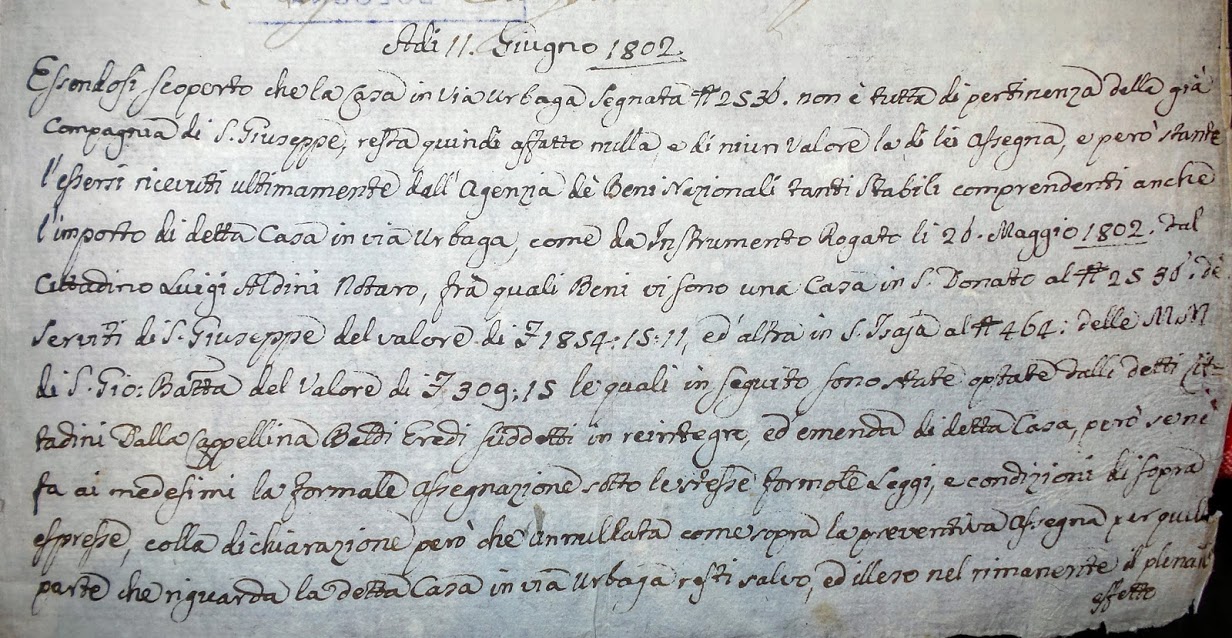 Adi 11. Giugno 1802.
Essendosi scoperto che la Casa in Via Urbaga segnata # 2536. non è tutta di pertinenza della già
Compagnia di S. Giuseppe, resta quindi affatto nulla, e di niun Valore la di lei Assegna, e però stante
l'essersi ricevuti ultimamente dall'Agenzia de Beni Nazionali tanti Stabili comprendenti anche
l'importo di detta Casa in via Urbaga, come da Instrumento Rogato li 26. Maggio 1802. dal
Cittadino Luigi Aldini Notaro, frà quali Beni vi sono una Casa in S. Donato al # 2536. de
Serviti di S. Giuseppe del valore di 1854:15:11, ed altra in S. Isaja al # 464: delle MM
di S. Gio: Batta del Valore di 309:15 le quali in seguito sono state optate dalli detti Cit=
tadini Dalla Cappellina Baldi Eredi suddetti in reintegre, ed emenda di detta Casa, però se nè
fa ai medesimi la formale assegnazione sotto le stesse formole Leggi, e condizioni di sopra
espresse, colla dichiarazione però che annullata come sopra la preventiva Assegna per quella
parte che riguarda la detta Casa in via Urbaga resti salvo, ed illeso nel rimanente il
effetto